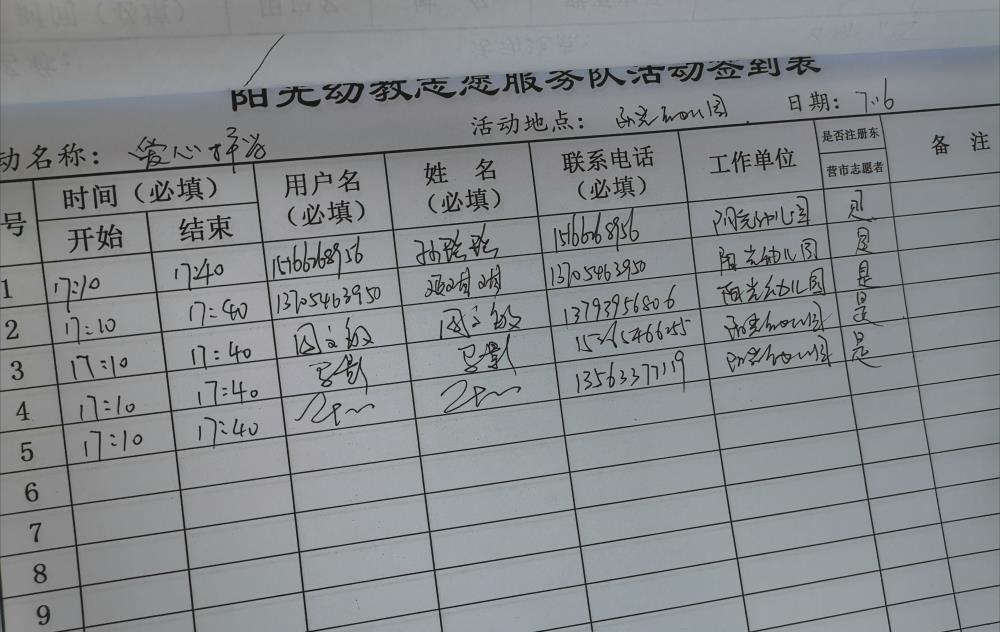 阳光幼教志愿服务队活动签到表
动名称: 爱心 活动地点: 阳光幼儿园 日期: 7.16
号 时间（必填） 用户名（必填） 姓 名（必填） 联系电话（必填） 工作单位 是否注册东营市志愿者 备 注
开始 结束
1 17:10 17:40 15766268956 15766268956 阳光幼儿园 是
2 17:10 17:40 13705463950 13705463950 阳光幼儿园 是
3 17:10 17:40 周文敏 周文敏 13793956806 阳光幼儿园 是
4 17:10 17:40 阳光幼儿园 是
5 17:10 17:40 13563377119 阳光幼儿园 是
6
7
8
9